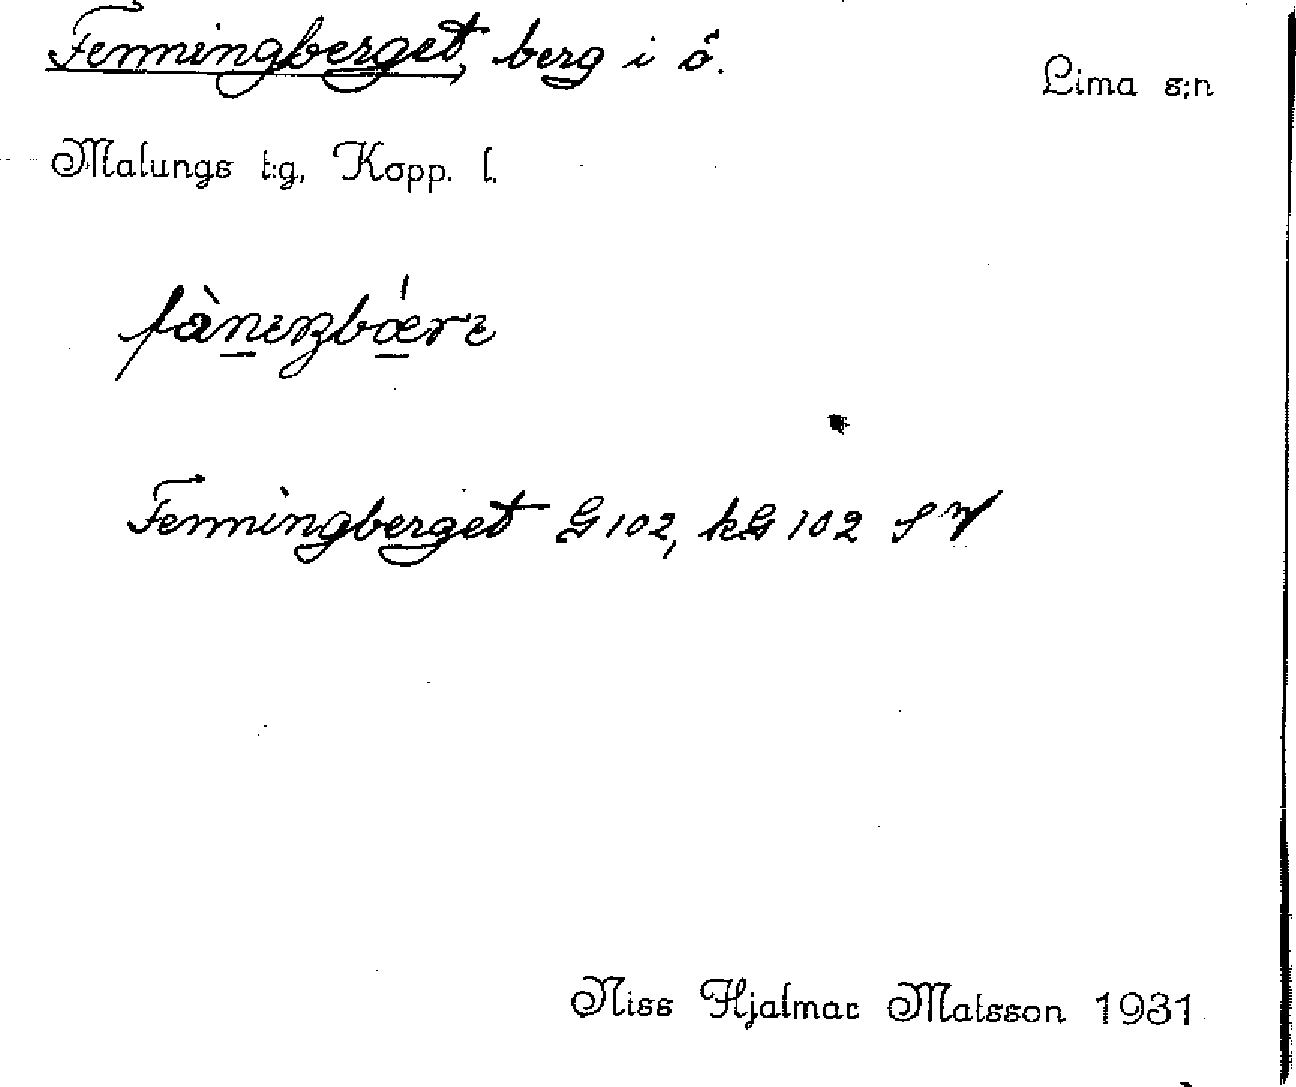 Fenningberget, berg i ö.
Lima s:n
Malungs t:g, Kopp. l.
Fenningberget G 102, kG 102 SV
Niss Hjalmar Matsson 1931